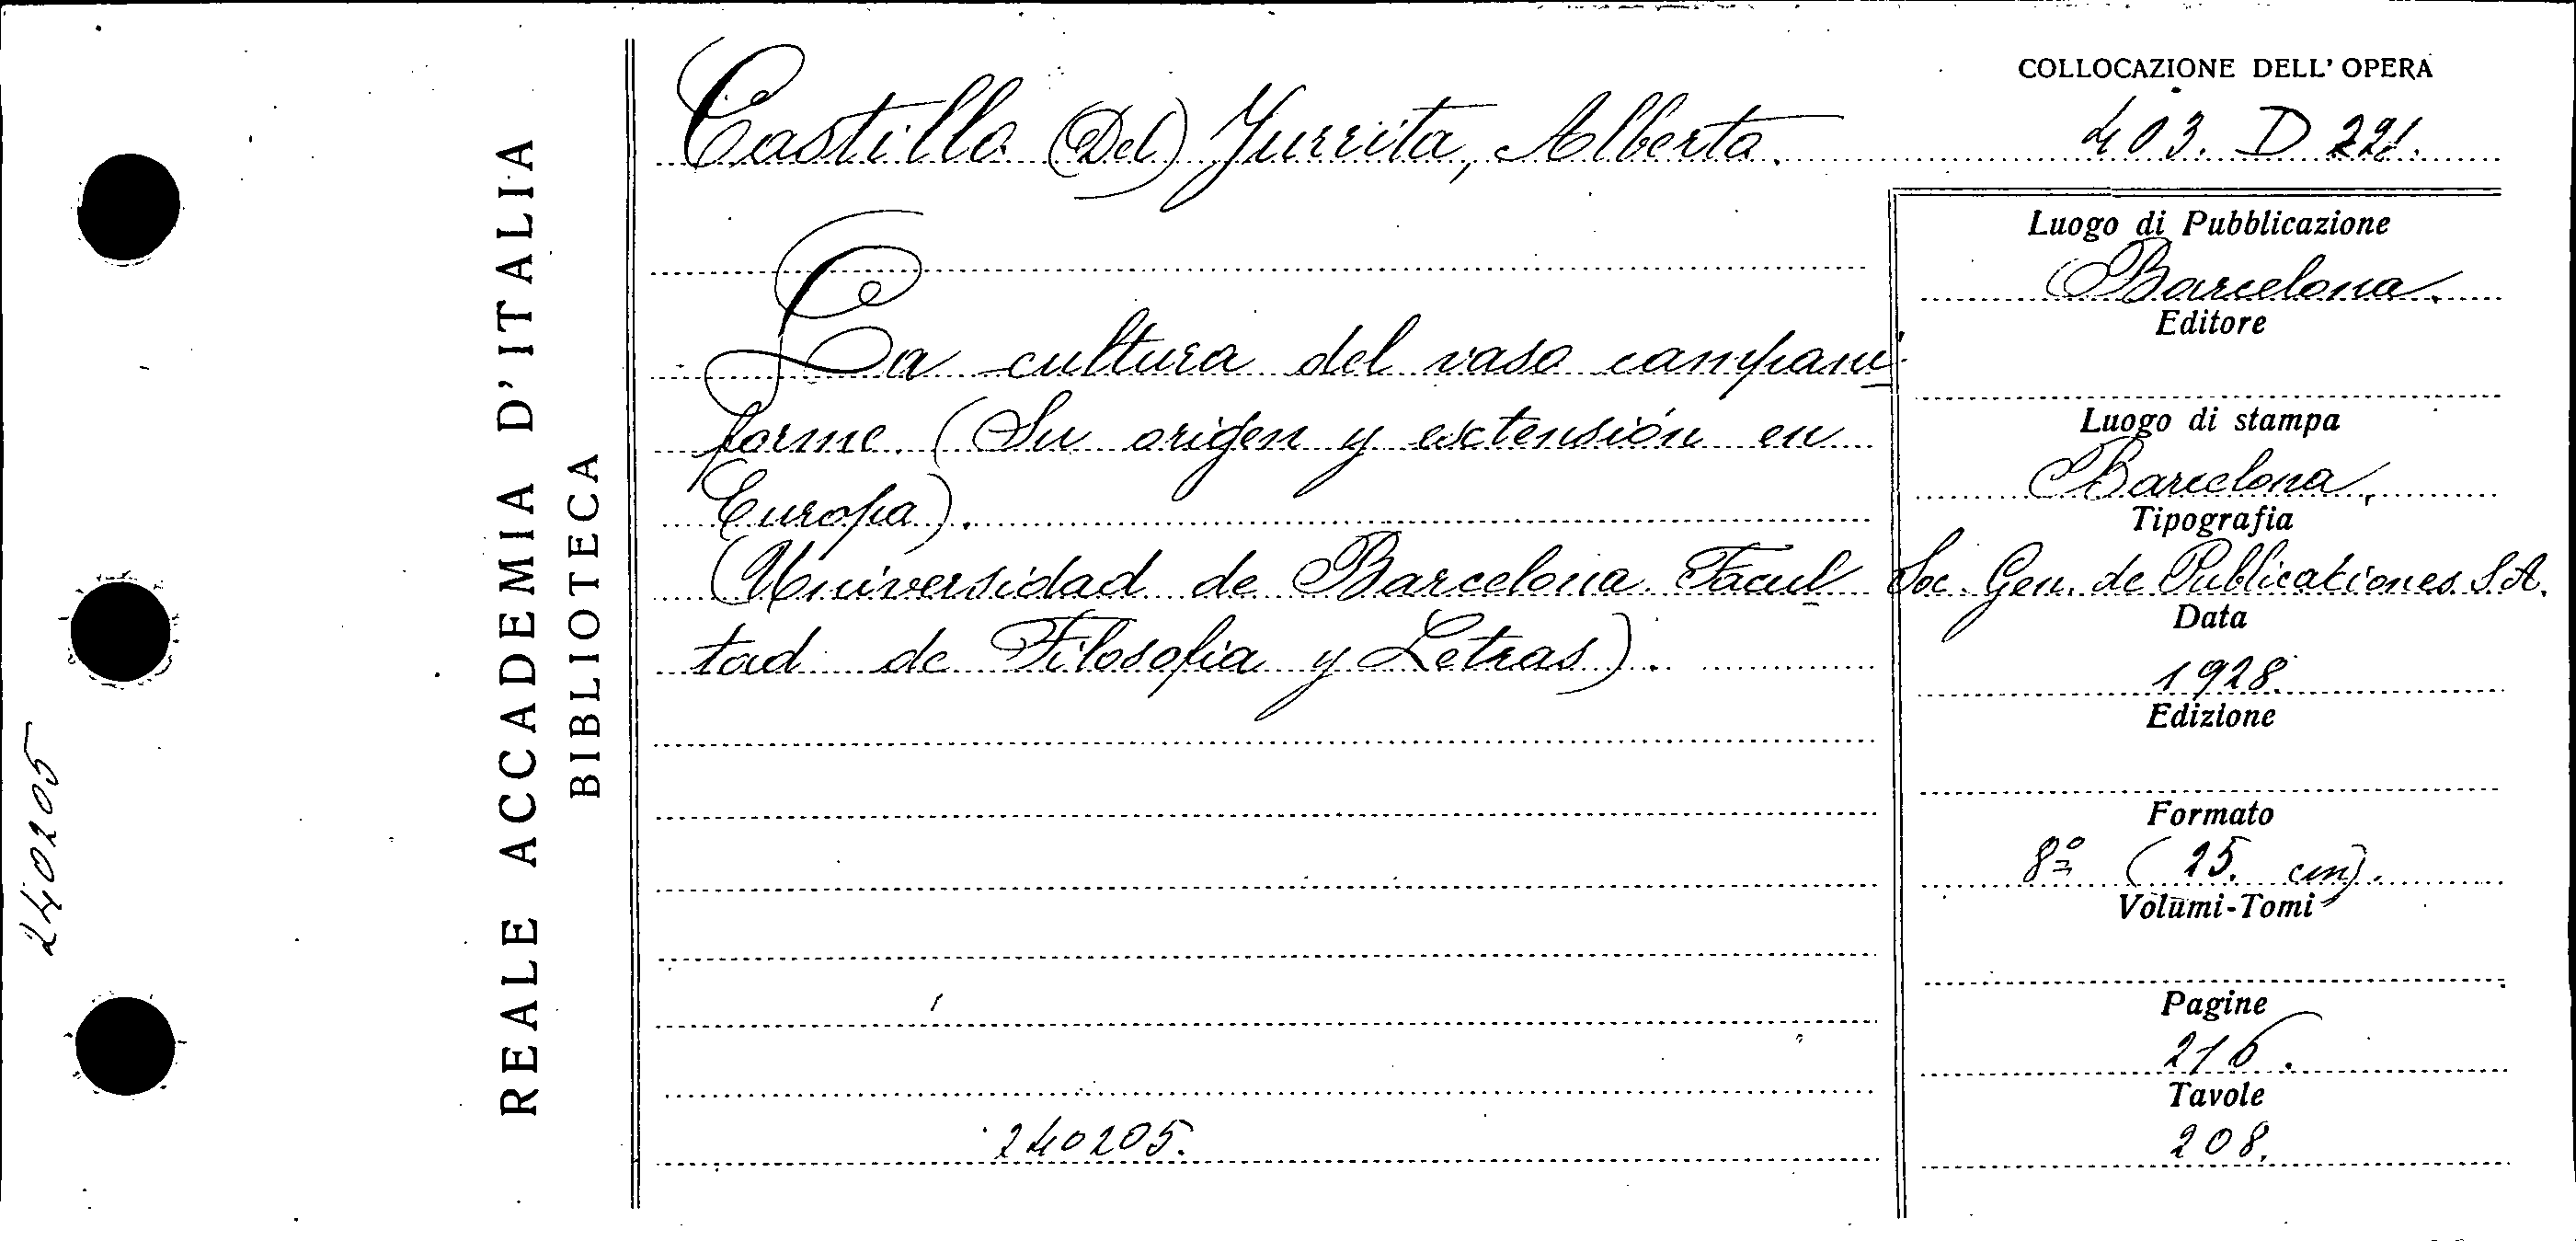 240205
REALE ACCADEMIA D'ITALIA
BIBLIOTECA
Castillo (Del) Yurrita, Alberto.
La cultura del vaso campani-
forme. (Su origen y extensión en
Europa).
(Universidad de Barcelona. Facul
tad de Filosofia y Letras).
240205.
COLLOCAZIONE DELL'OPERA
403. D 221.
Luogo di Pubblicazione
Barcelona.
Editore
Luogo di stampa
Barcelona.
Tipografia
Soc. Gen. de Publicationes S.A.
Data
1928.
Edizione
Formato
8º (25. cm).
Volumi-Tomi
Pagine
216.
Tavole
208.